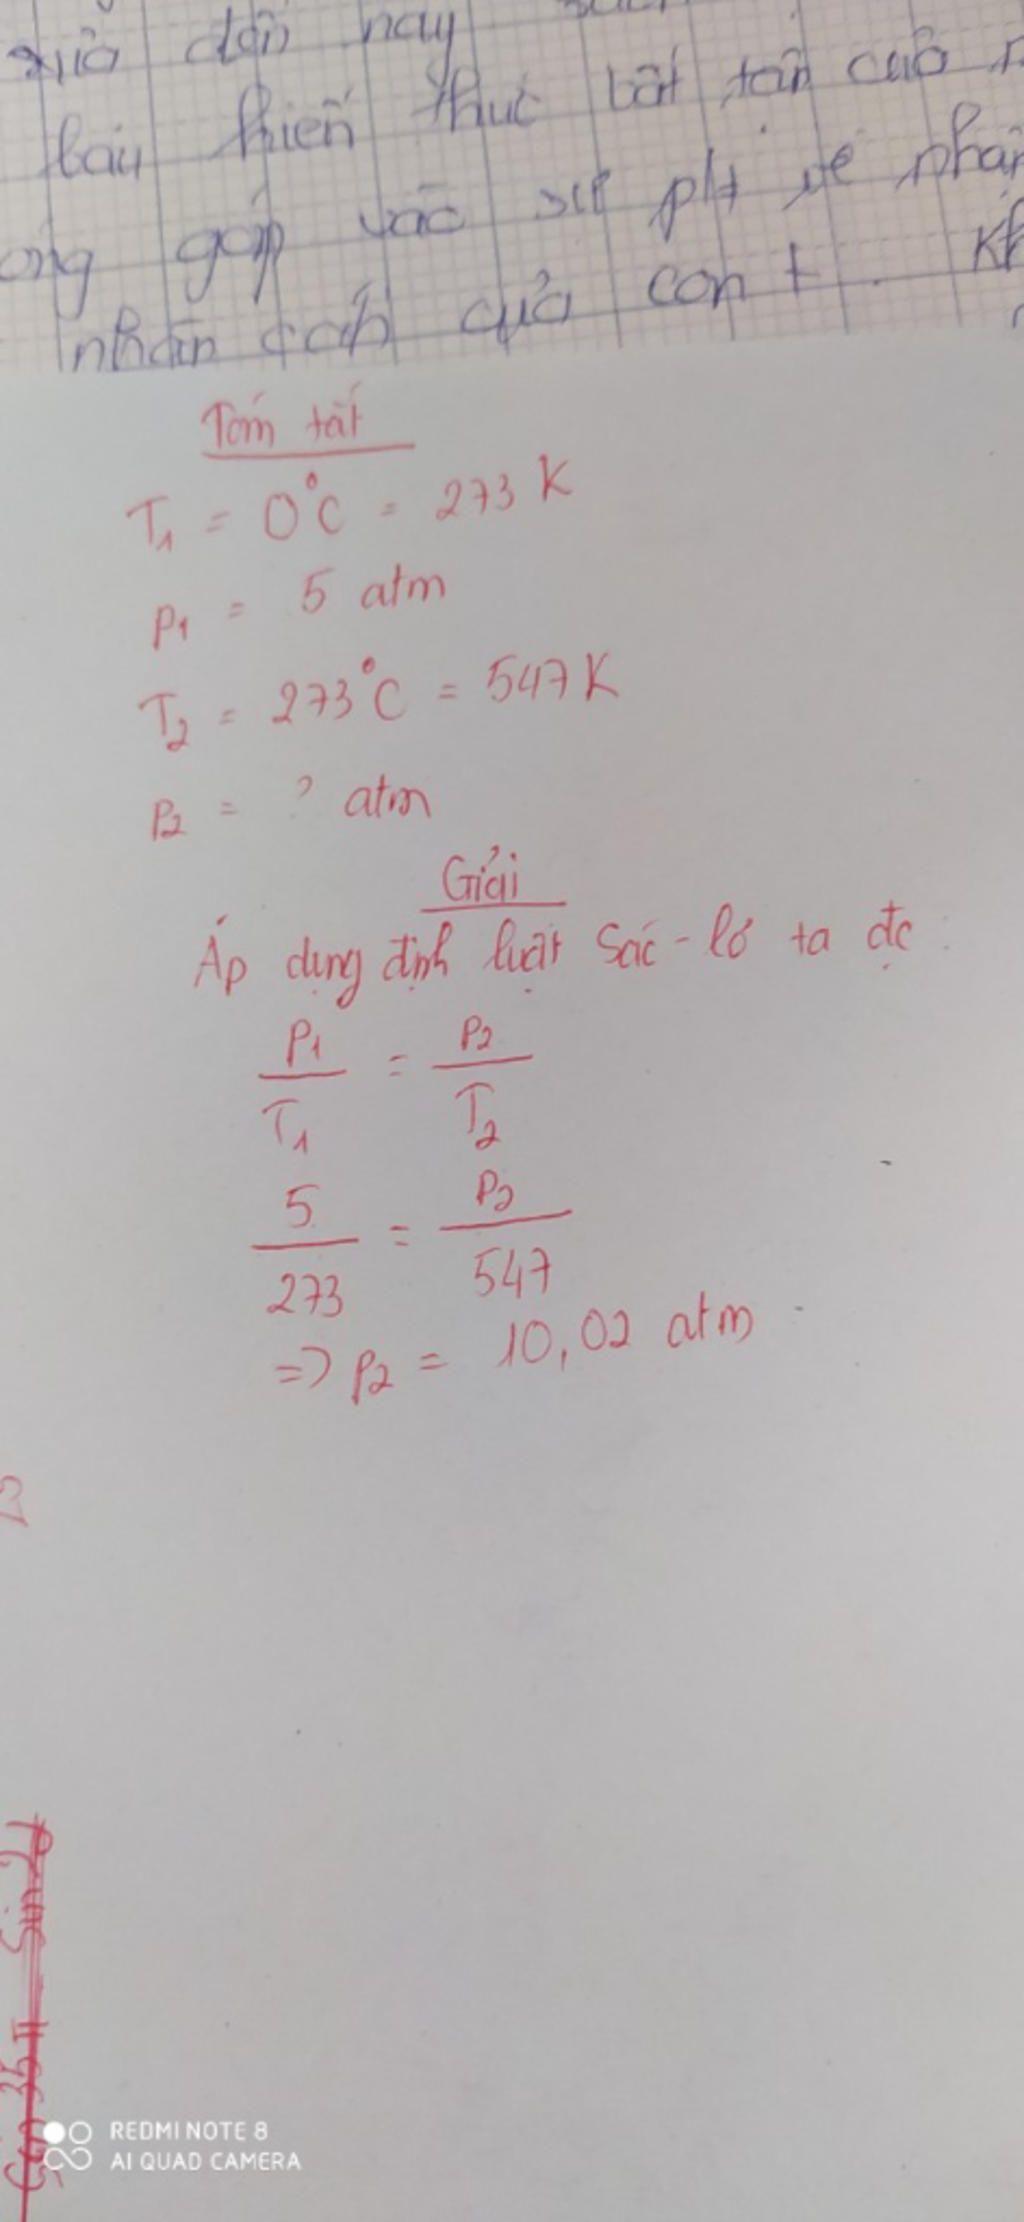 đến nay
kiến thức bất tận của
góp vào sự pht về
nhân cách của con t
Tóm tắt
T₁ = 0°C = 273 K
P₁ = 5 atm
T₂ = 273°C = 547 K
P₂ = ? atm
Giải
Áp dụng định luật Sác-lơ ta đc:
P₁/T₁ = P₂/T₂
5/273 = P₂/547
=> P₂ = 10,02 atm
REDMI NOTE 8
AI QUAD CAMERA